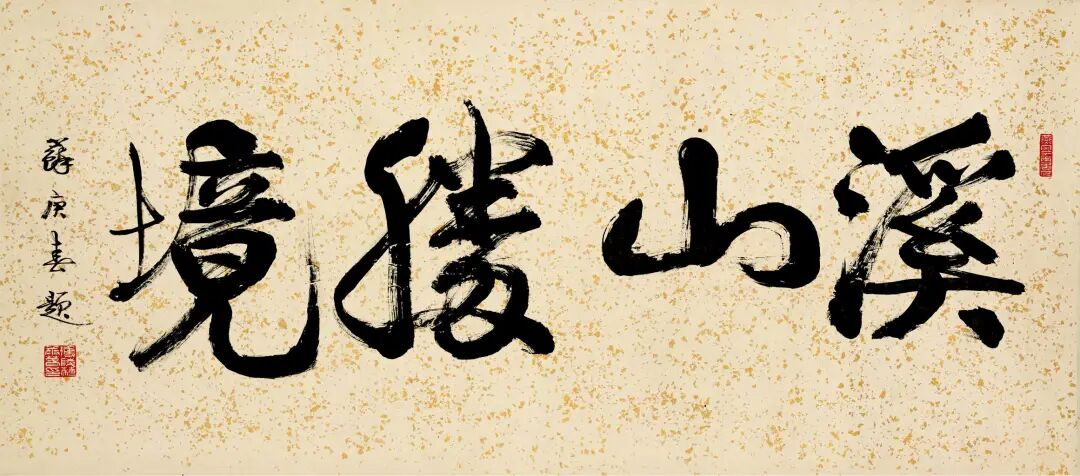 溪山勝境
蘇庚春題